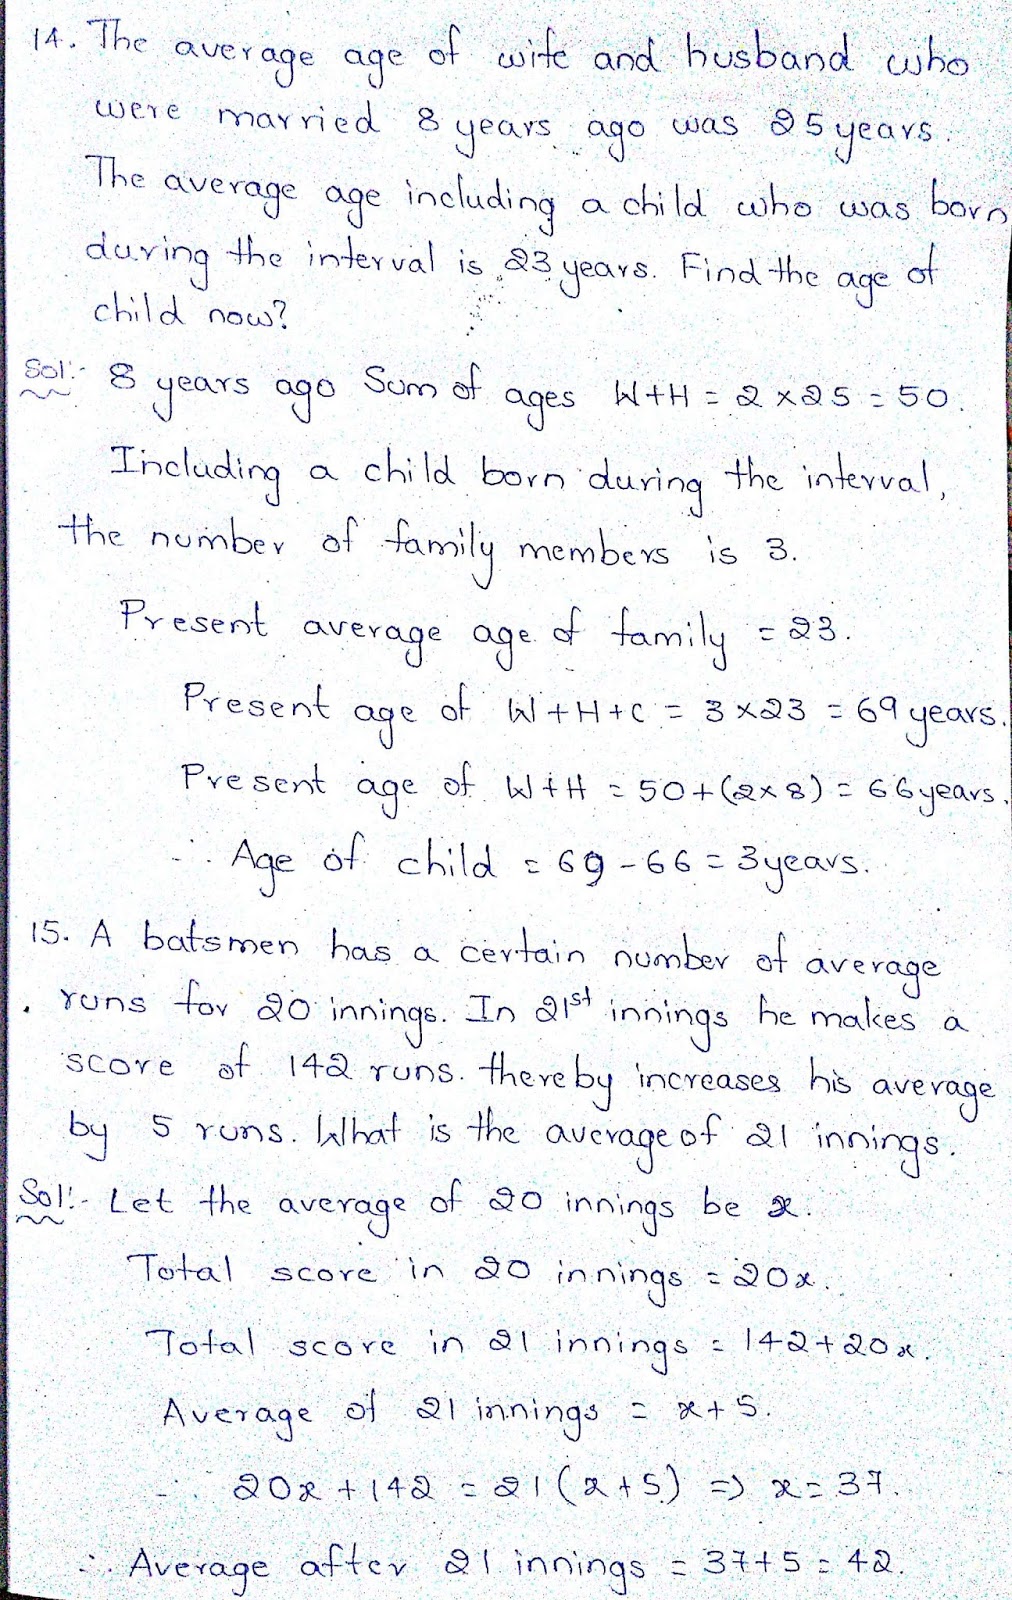 14. The average age of wife and husband who
were married 8 years ago was 25 years.
The average age including a child who was born
during the interval is 23 years. Find the age of
child now?
Sol:- 8 years ago Sum of ages W+H = 2 x 25 = 50.
Including a child born during the interval,
the number of family members is 3.
Present average age of family = 23.
Present age of W+H+C = 3 x 23 = 69 years.
Present age of W+H = 50+(2x8) = 66 years.
∴ Age of child = 69 - 66 = 3 years.
15. A batsmen has a certain number of average
runs for 20 innings. In 21st innings he makes a
score of 142 runs. thereby increases his average
by 5 runs. What is the average of 21 innings.
Sol:- Let the average of 20 innings be x.
Total score in 20 innings = 20x.
Total score in 21 innings = 142+20x.
Average of 21 innings = x+5.
∴ 20x + 142 = 21(x+5) => x = 37.
∴ Average after 21 innings = 37+5 = 42.